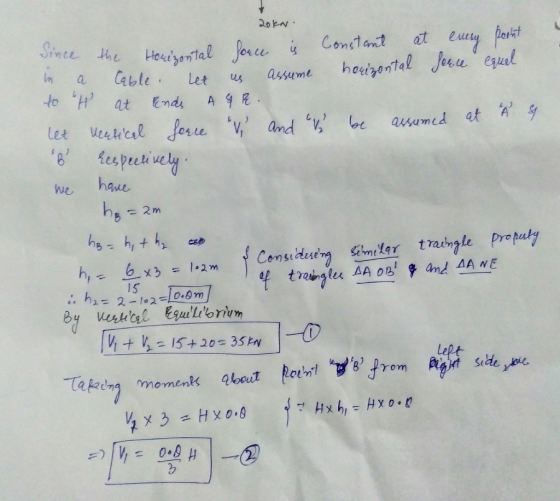 20KN.
Since the Horizontal force is Constant at every point
in a Cable. Let us assume horizontal force equal
to 'H' at Ends A & E.
Let Vertical force 'V₁' and 'V₂' be assumed at 'A' &
'B' Respectively.
we have
h_B = 2m
h_B = h₁ + h₂
h₁ = 6/15 × 3 = 1.2m { Considering similar traingle property
of traingles ΔAOB' and ΔANE
∴ h₂ = 2 - 1.2 = 0.8m
By Vertical Equilibrium
V₁ + V₂ = 15 + 20 = 35KN —①
Taking moments about point 'B' from Left side
V₁ × 3 = H × 0.8 { ∵ H × h₁ = H × 0.8
⇒ V₁ = 0.8/3 H —②